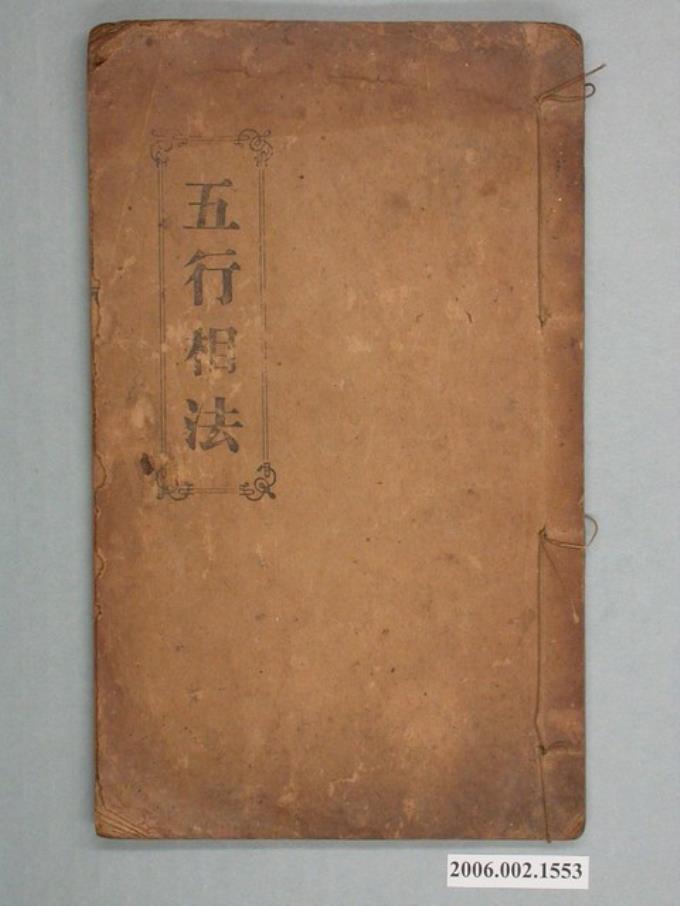 五行相法
2006.002.1553